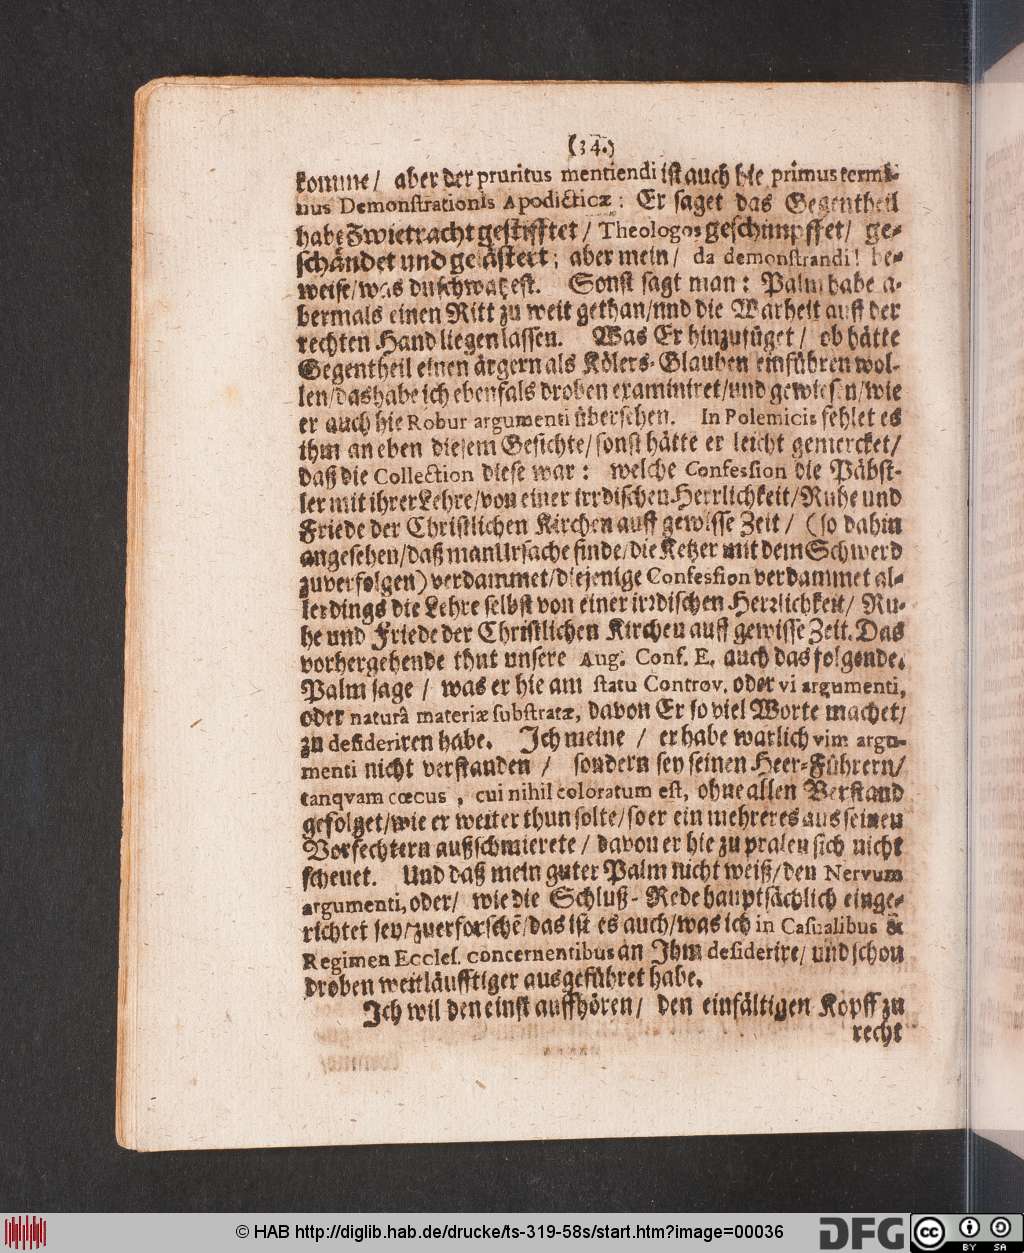 (34.)
komme/ aber der pruritus mentiendi ist auch hie primus termi-
nus Demonſtrationis Apodicticæ: Er ſaget das Gegentheil
habe Zwietracht geſtifftet/ Theologos geſchimpffet/ ge-
ſchändet und geläſtert; aber mein/ da demonſtrandi! be-
weiſe/ was du ſchwatzeſt. Sonſt ſagt man: Palm habe a-
bermals einen Ritt zu weit gethan/ und die Warheit auff der
rechten Hand liegen laſſen. Was Er hinzufüget/ ob hätte
Gegentheil einen ärgern als Kölers-Glauben einführen wol-
len/ das habe ich ebenfals droben examiniret/ und gewieſen/ wie
er auch hie Robur argumenti überſehen. In Polemicis fehlet es
ihm an eben dieſem Geſichte/ ſonſt hätte er leicht gemercket/
daß die Collection dieſe war: welche Confesſion die Päbſt-
ler mit ihrer Lehre/ von einer irrdiſchen Herrlichkeit/ Ruhe und
Friede der Chriſtlichen Kirchen auff gewiſſe Zeit/ (ſo dahin
angeſehen/ daß man Urſache finde/ die Ketzer mit dem Schwerd
zuverfolgen) verdammet/ diejenige Confesſion verdammet al-
lerdings die Lehre ſelbſt von einer irrdiſchen Herrlichkeit/ Ru-
he und Friede der Chriſtlichen Kirchen auff gewiſſe Zeit. Das
vorhergehende thut unſere Aug. Conf. E. auch das folgende.
Palm ſage/ was er hie am ſtatu Controv. oder vi argumenti,
oder naturâ materiæ ſubſtratæ, davon Er ſo viel Worte machet/
zu deſideriren habe. Ich meine/ er habe warlich vim argu-
menti nicht verſtanden/ ſondern ſey ſeinen Heer-Führern/
tanqvam cœcus, cui nihil coloratum eſt, ohne allen Verſtand
gefolget/ wie er weiter thun ſolte/ ſo er ein mehreres aus ſeinen
Vorfechtern außſchmierete/ davon er hie zu pralen ſich nicht
ſcheuet. Und daß mein guter Palm nicht weiß/ den Nervum
argumenti, oder/ wie die Schluß-Rede hauptſächlich einge-
richtet ſey/ zuerforſchē/ das iſt es auch/ was ich in Caſualibus &
Regimen Eccleſ. concernentibus an Ihm deſiderire/ und ſchon
droben weitläufftiger ausgeführet habe.
Ich wil den einſt auffhören/ den einfältigen Kopff zu
recht
© HAB http://diglib.hab.de/drucke/ts-319-58s/start.htm?image=00036
DFG
cc
BY SA